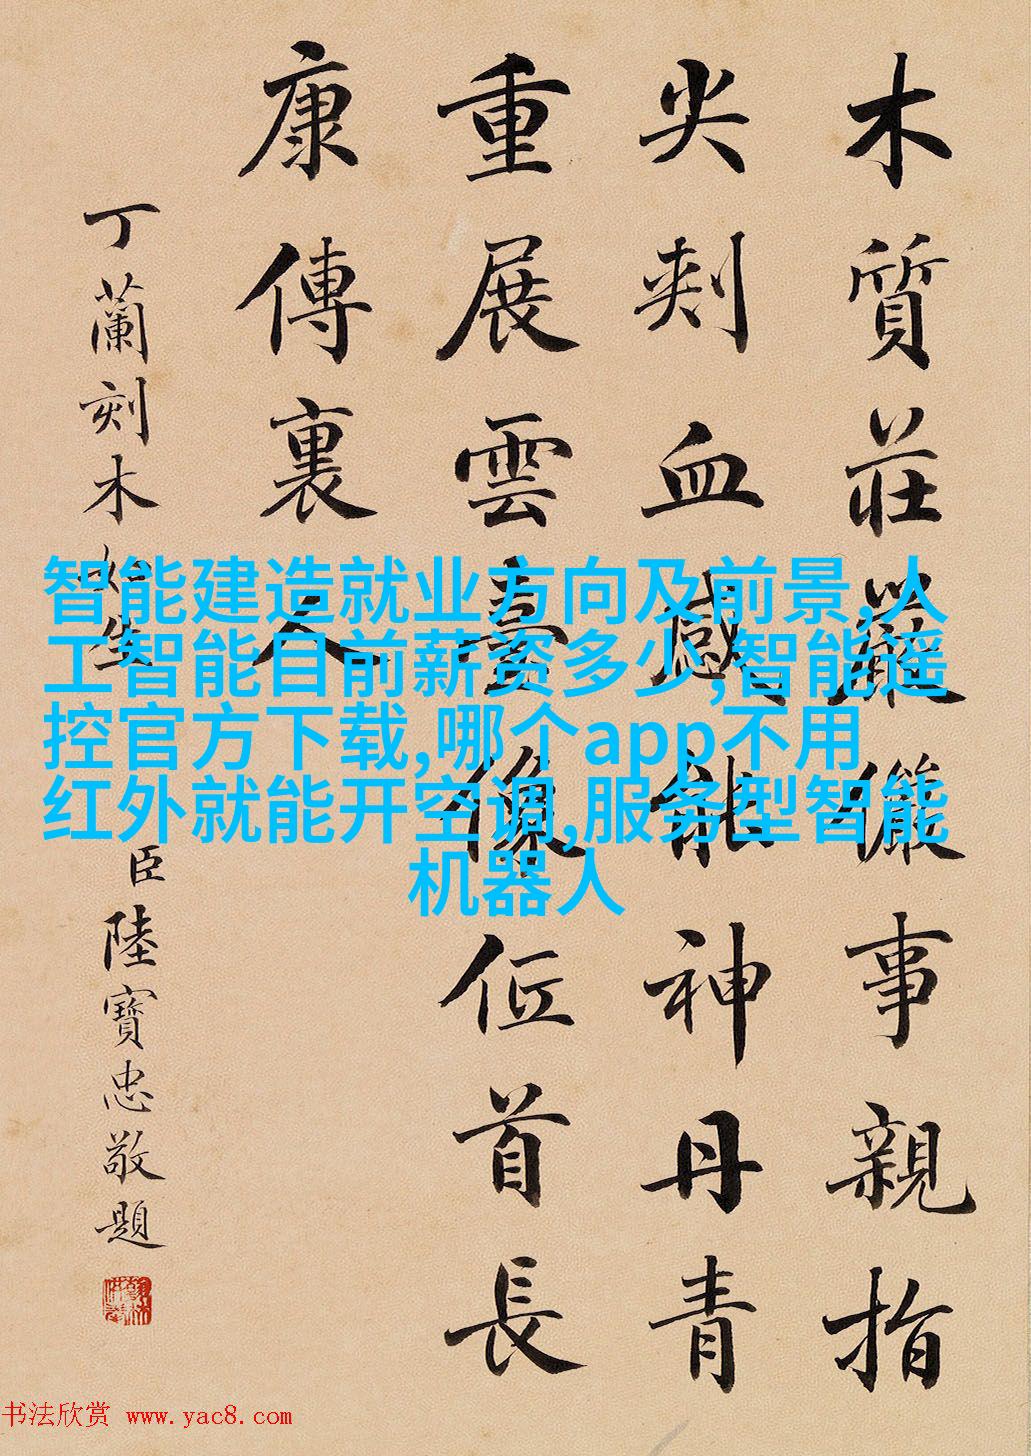 木質莊嚴儼事親指
尖刾血感能神丹青
重展雲臺像低首長
康傳裏人
丁蘭刻木如生
臣陸寶忠敬題
智能建造就业方向及前景,人
工智能目前薪资多少,智能遥
控官方下载,哪个app不用
红外就能开空调,服务型智能
机器人
书法欣赏 www.yac8.com